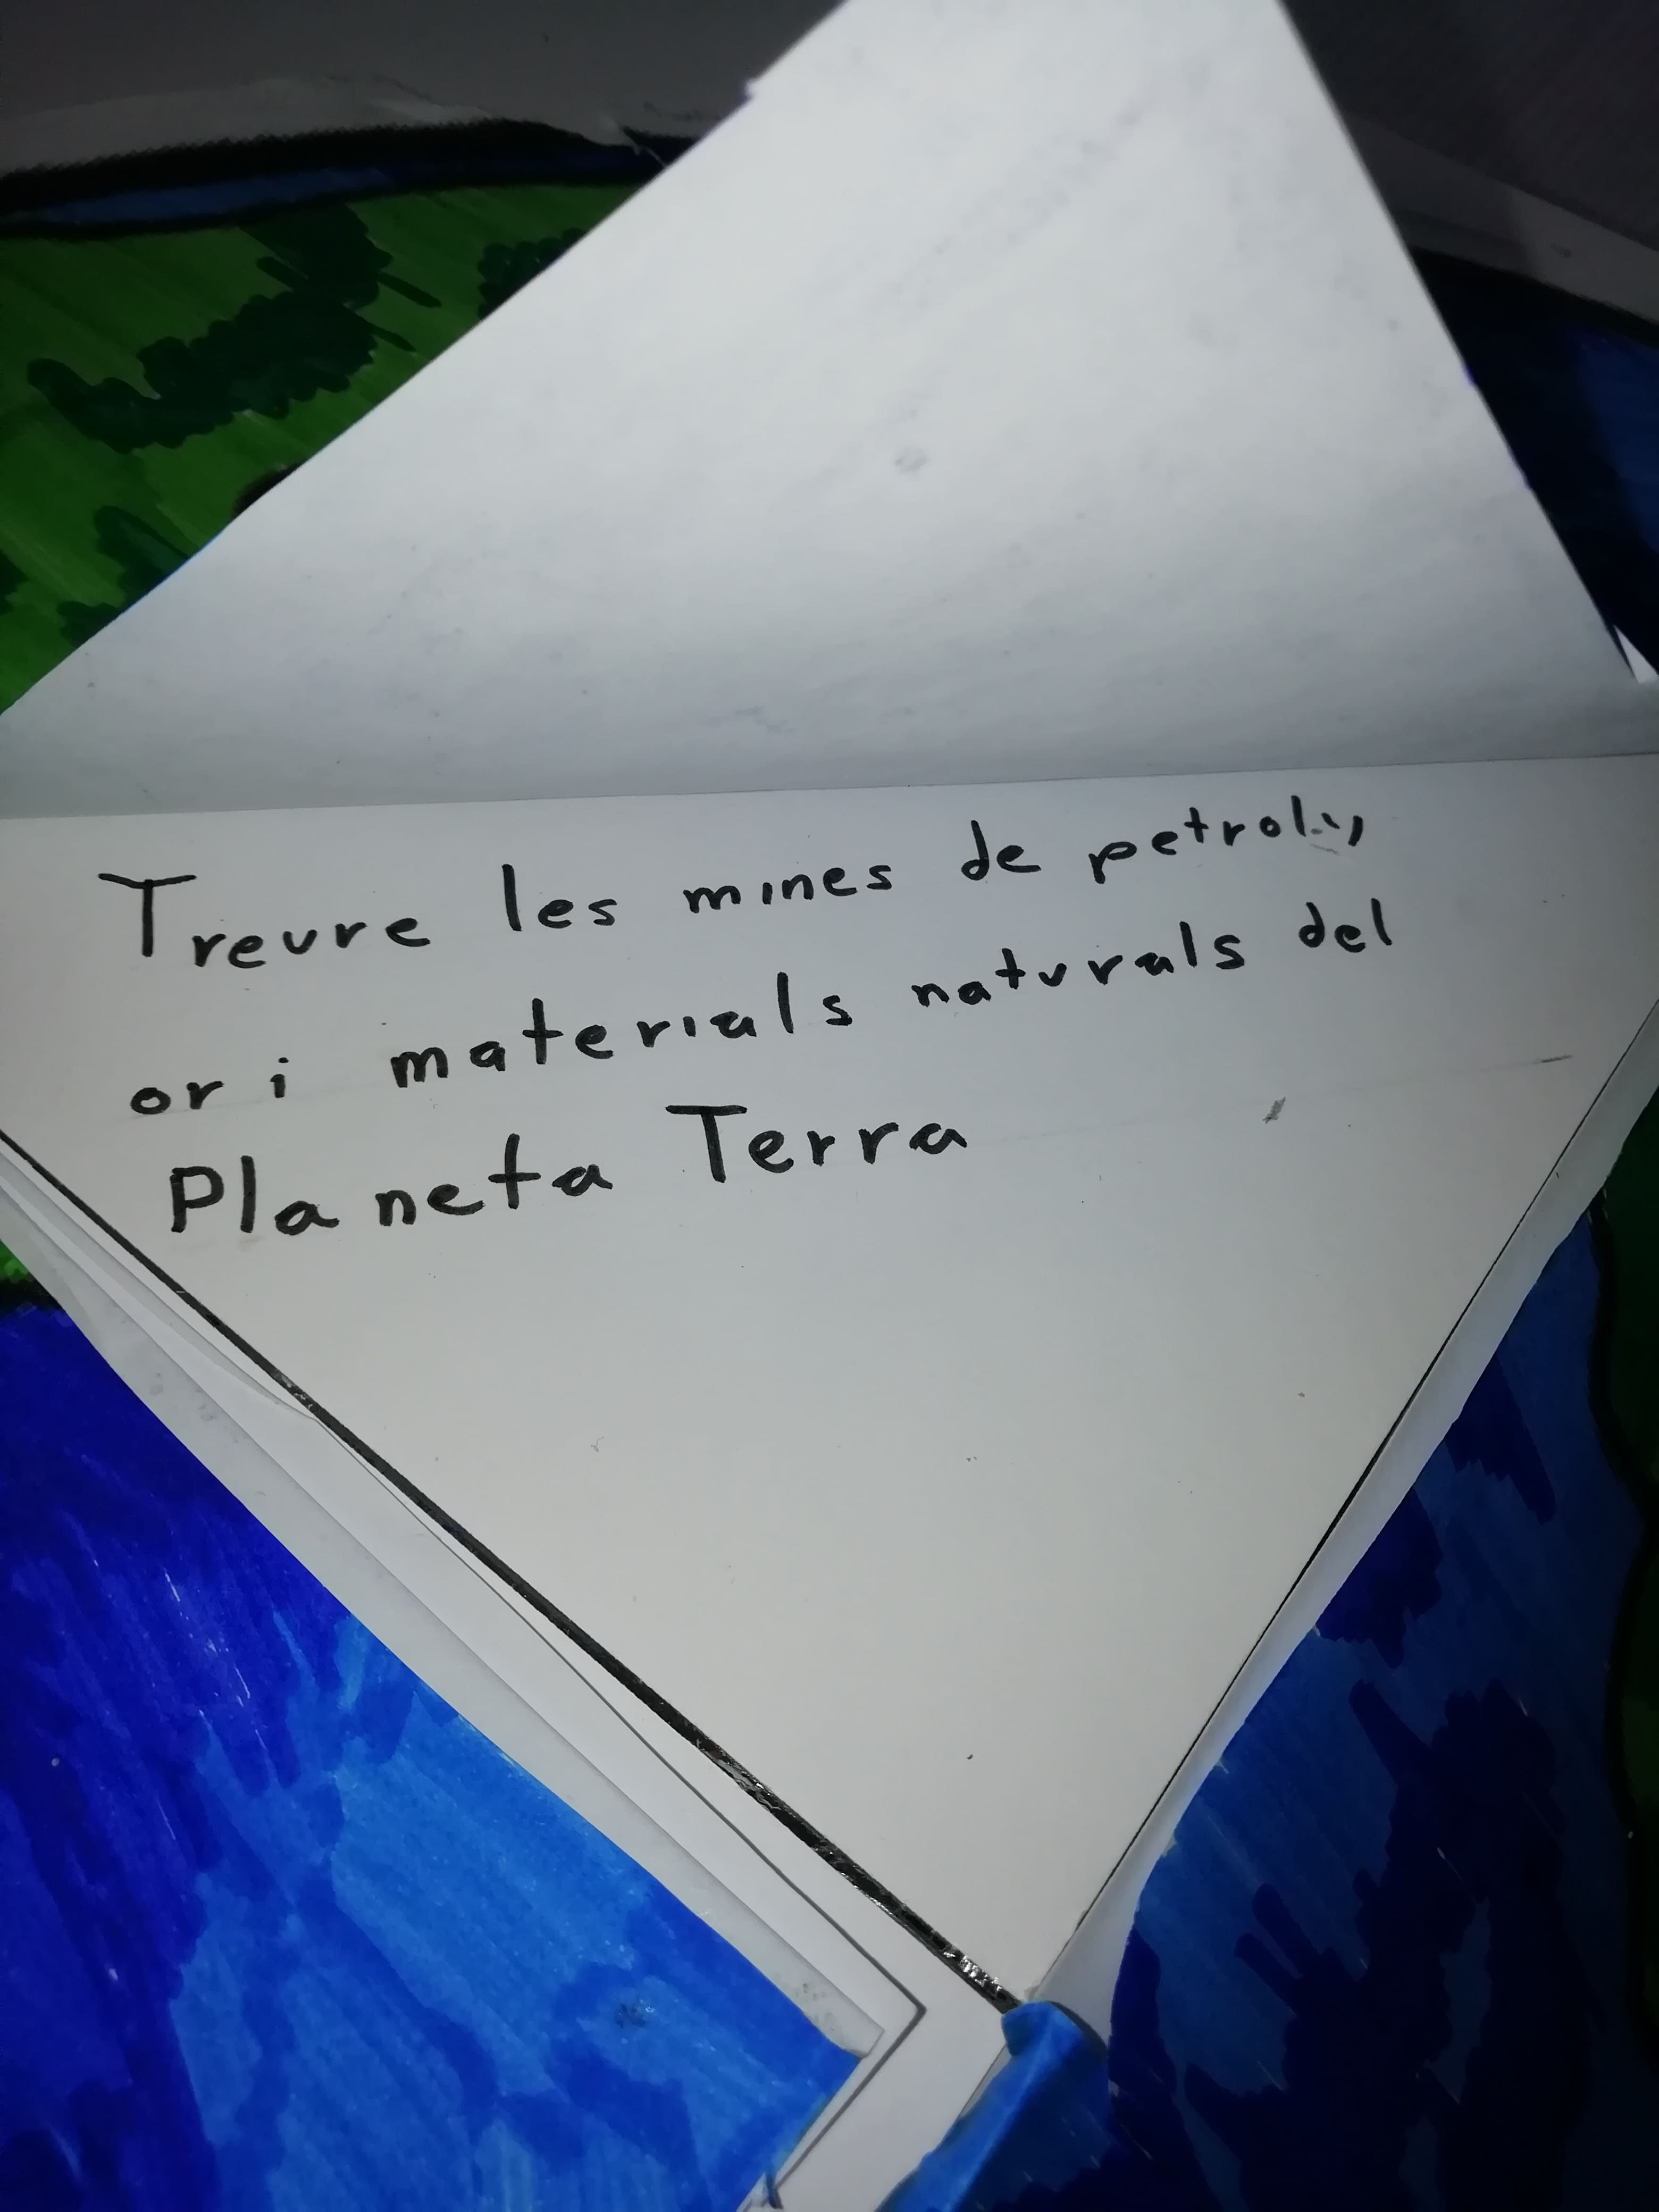 Treure les mines de petroli,
or i materials naturals del
Planeta Terra